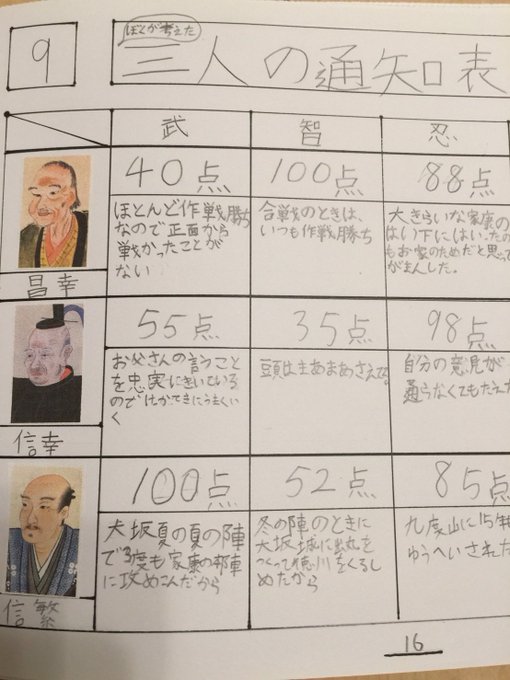 9
ぼくが考えた
三人の通知表
武
智
忍
昌幸
40点
ほとんど作戦勝ち
なので正面から
戦かったことが
ない
100点
合戦のときは、
いつも作戦勝ち
88点
大きらいな家康の
はい下にはいったの
もお家のためだと思って
がまんした。
信幸
55点
お父さんの言うこと
を忠実にきいている
のでけっかてきにうまくい
く
35点
頭はまあまあさえてる
98点
自分の意見が
通らなくてもたえた
信繁
100点
大坂夏の夏の陣
で3度も家康の本陣
に攻めこんだから
52点
冬の陣のときに
大坂城に出丸を
つくって徳川をくるし
めたから
85点
九度山に15年
ゆうへいされた
16